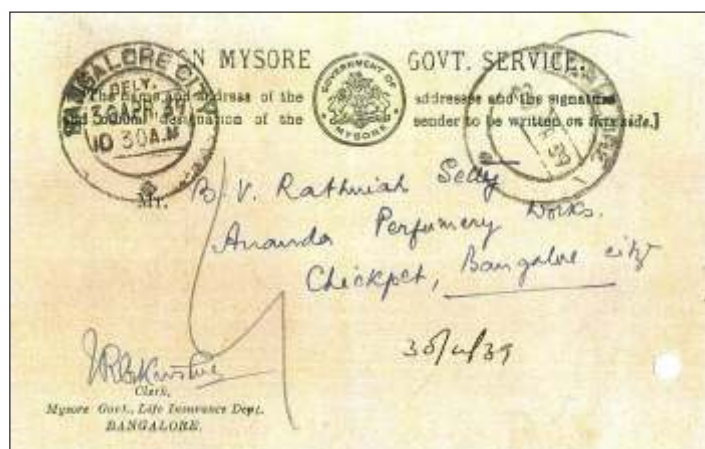 ON MYSORE GOVT. SERVICE.
[The name and address of the addressee and the signature
and official designation of the sender to be written on this side.]
GOVERNMENT OF
MYSORE
BANGALORE CITY
DELY.
30 APR 39
10 30 A.M
Mr. B. V. Rathniah Setty
Ananda Perfumery Works.
Chickpet, Bangalore city
30/4/39
Clerk,
Mysore Govt., Life Insurance Dept.
BANGALORE.